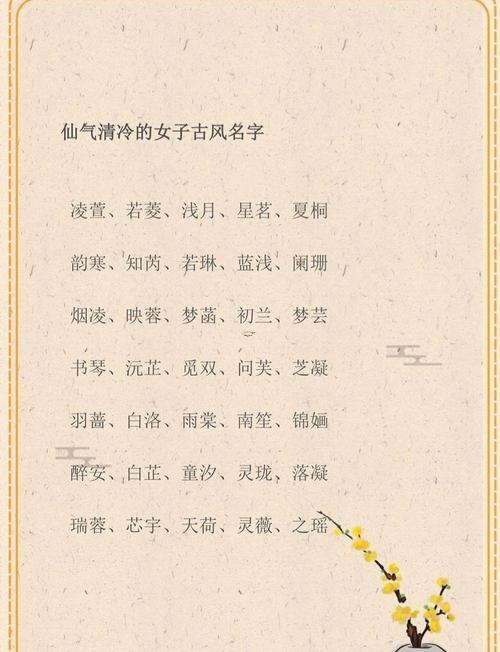 仙气清冷的女子古风名字
凌萱、若菱、浅月、星茗、夏桐
韵寒、知芮、若琳、蓝浅、阑珊
烟凌、映蓉、梦菡、初兰、梦芸
书琴、沅芷、觅双、问芙、芝凝
羽蔷、白洛、雨棠、南笙、锦婳
醉安、白芷、童汐、灵珑、落凝
瑞蓉、芯宇、天荷、灵薇、之瑶